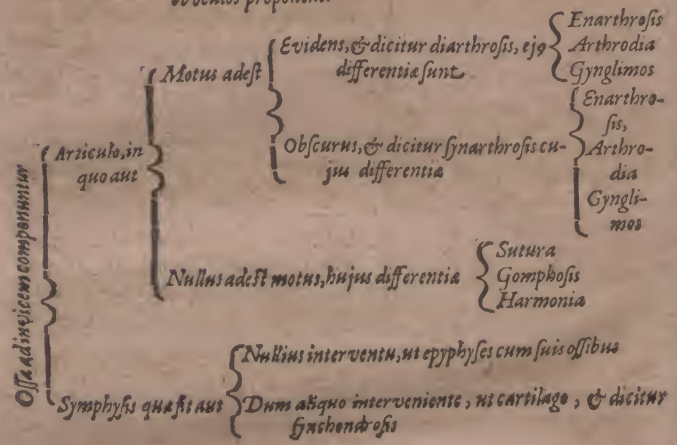 ob oculos proponent.
Ossa ad invicem componuntur
Articulo, in
quo aut
Motus adest
Evidens, & dicitur diarthrosis, ej9
differentiæ sunt
Enarthrosis
Arthrodia
Gynglimos
Obscurus, & dicitur synarthrosis cu-
jus differentia
Enarthro-
sis,
Arthro-
dia
Gyngli-
mos
Nullus adest motus, hujus differentia
Sutura
Gomphosis
Harmonia
Symphysis quæ fit aut
Nullius interventu, ut epyphyses cum suis ossibus
Dum aliquo interveniente, ut cartilago, & dicitur
synchondrosis